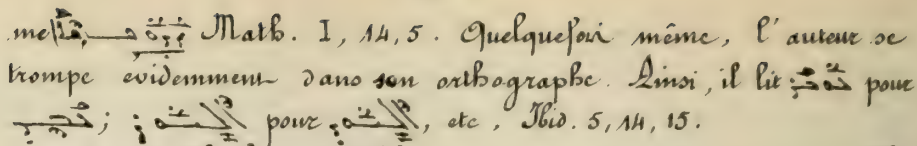 me Math. I, 14, 5. Quelquefois même, l'auteur se
trompe evidemment dans son orthographe. Ainsi, il lit pour
; pour , etc, Ibid. 5, 14, 15.